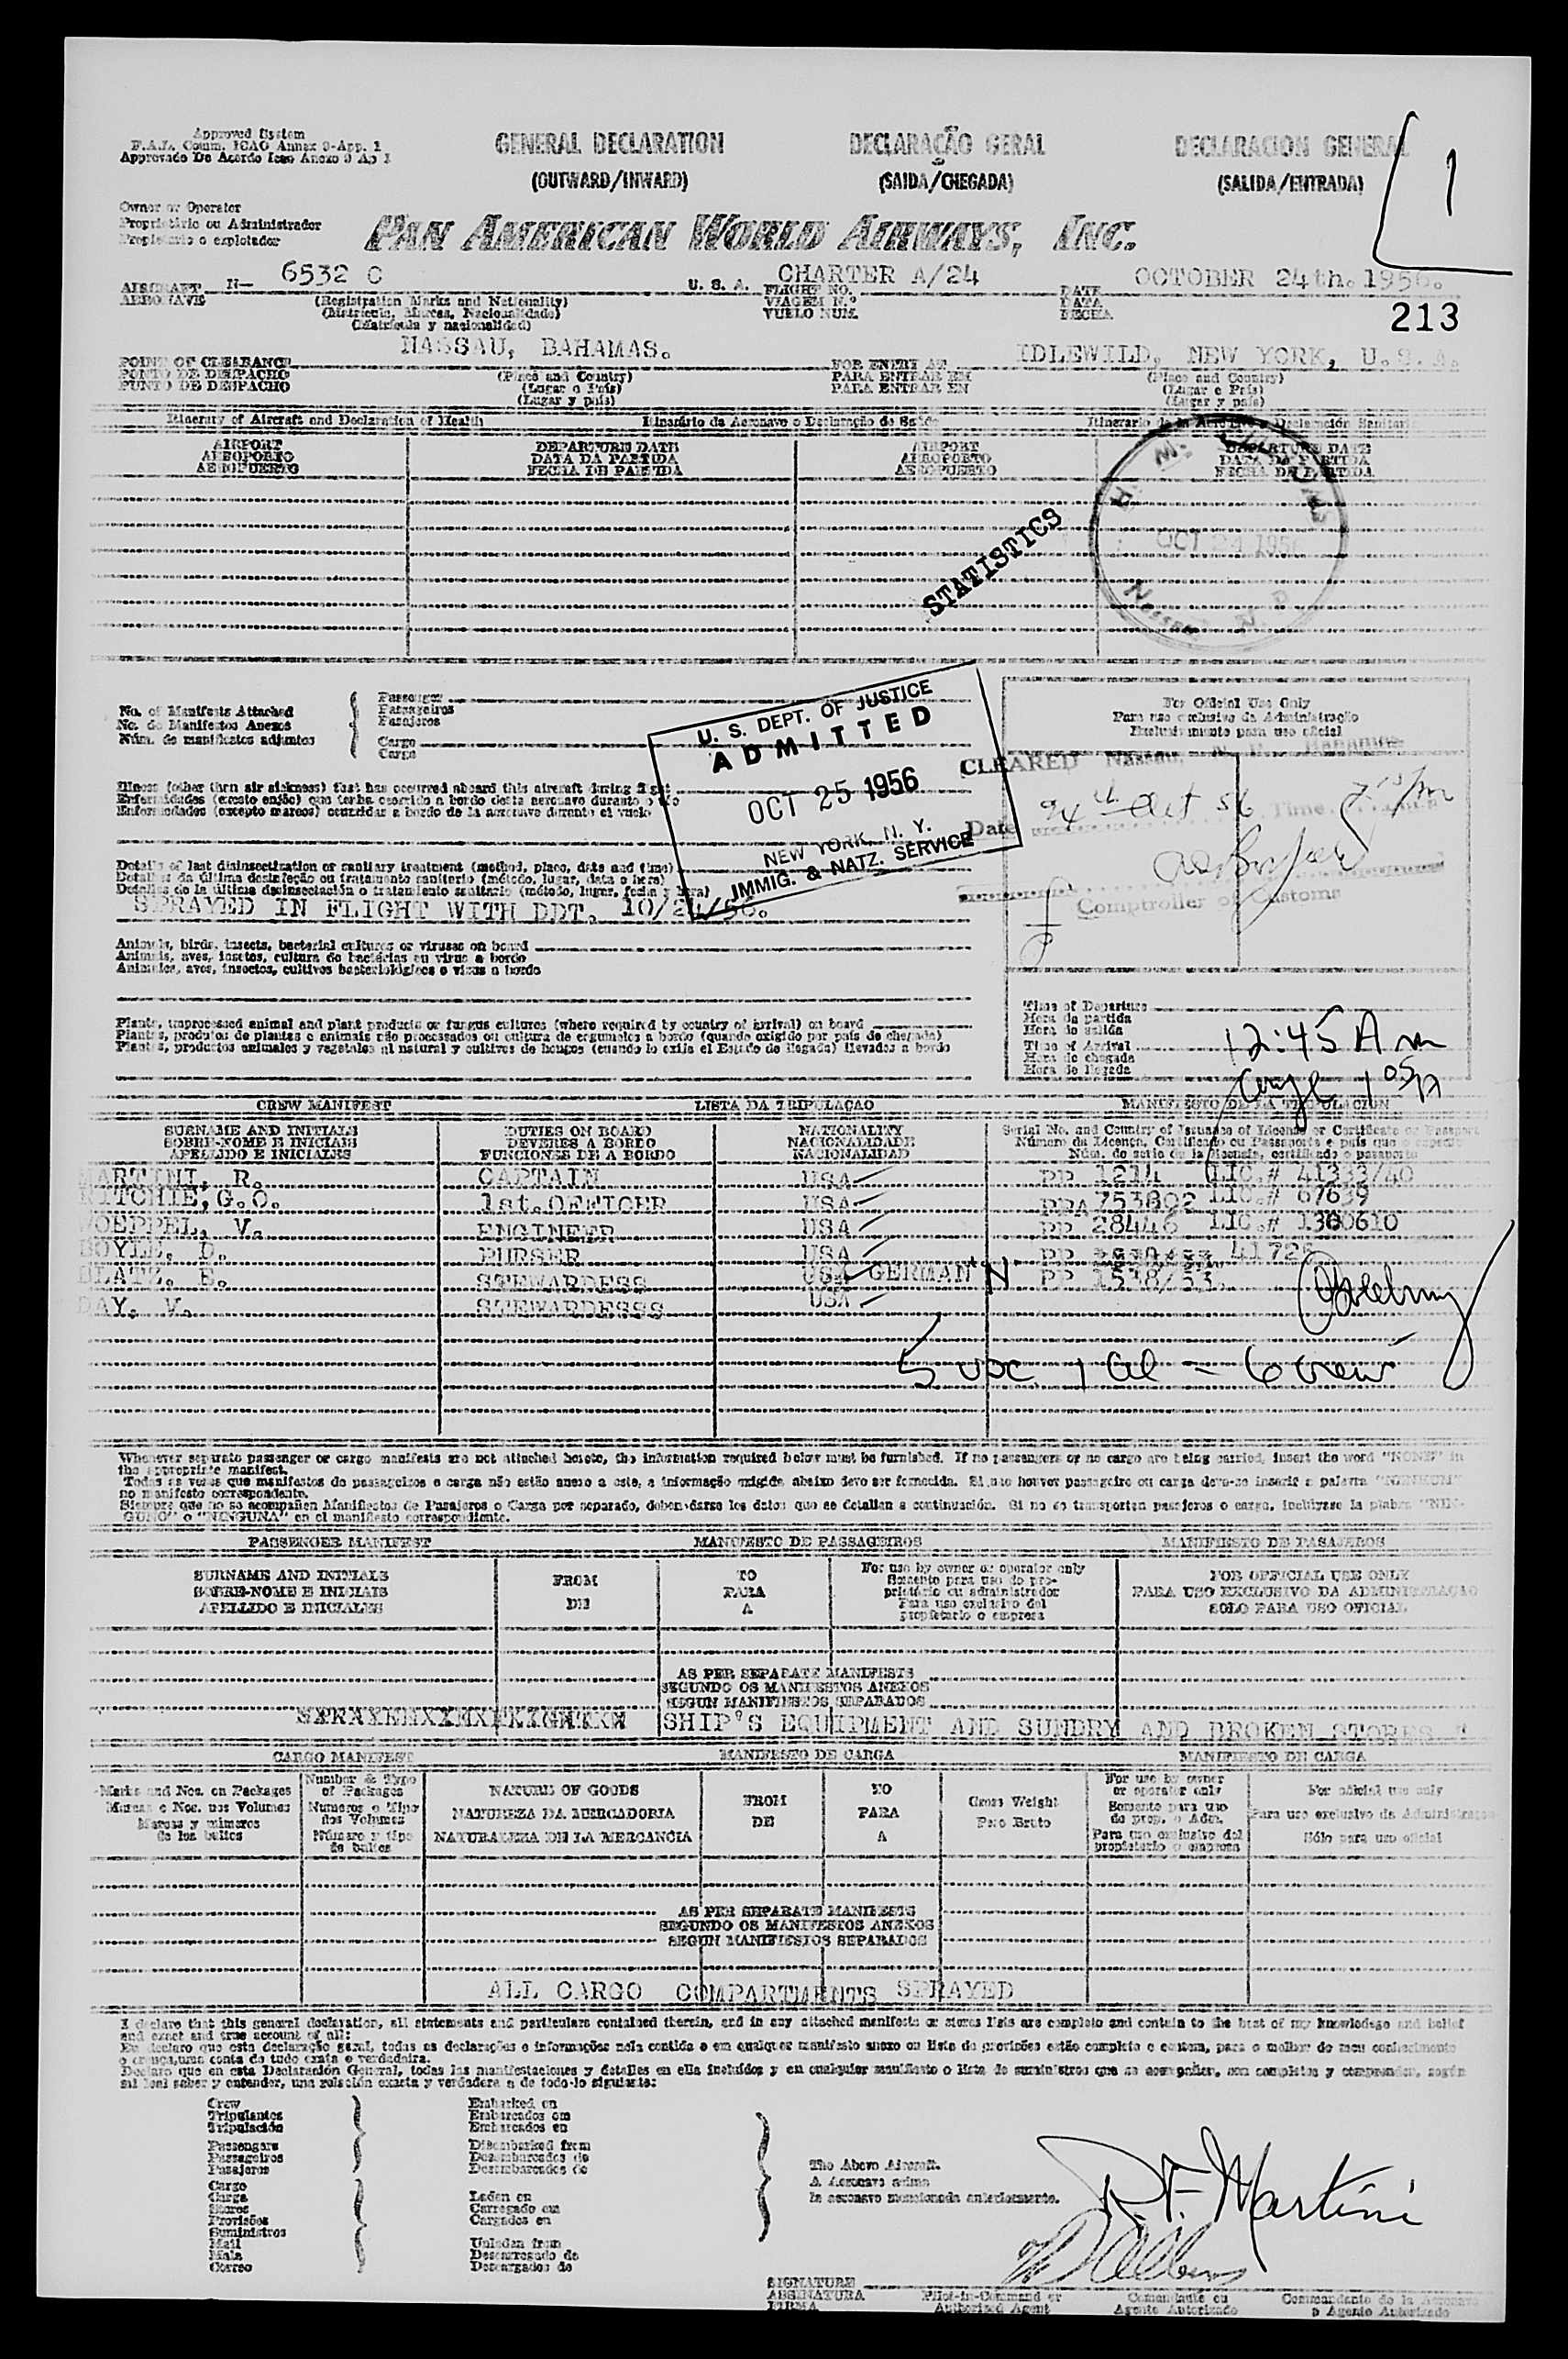 Approved System
F.A.L. Comm. ICAO Annex 9-App. 1
Approvado De Acordo Icao Anexo 9 Ap 1
GENERAL DECLARATION
(OUTWARD/INWARD)
DECLARAÇÃO GERAL
(SAIDA/CHEGADA)
DECLARACION GENERAL
(SALIDA/ENTRADA)
1
Owner or Operator
Proprietário ou Administrador
Propietario o explotador
PAN AMERICAN WORLD AIRWAYS, INC.
AIRCRAFT N- 6532 C U. S. A.
AERONAVE
(Registration Marks and Nationality)
(Matricula, Marcas, Nacionalidade)
(Matrícula y nacionalidad)
FLIGHT NO. CHARTER A/24
VIAGEM N.º
VUELO NUM.
DATE OCTOBER 24th. 1956.
DATA
FECHA
213
POINT OF CLEARANCE NASSAU, BAHAMAS.
PONTO DE DESPACHO
PUNTO DE DESPACHO
(Place and Country)
(Lugar o País)
(Lugar y país)
FOR ENTRY AT IDLEWILD, NEW YORK, U.S.A.
PARA ENTRAR EM
PARA ENTRAR EN
(Place and Country)
(Lugar e País)
(Lugar y país)
Itinerary of Aircraft and Declaration of Health
Itinerário da Aeronave o Declaração de Saúde
Itinerario de la Aeronave o Declaración Sanitaria
AIRPORT
AEROPORTO
AEROPUERTO
DEPARTURE DATE
DATA DA PARTIDA
FECHA DE PARTIDA
AIRPORT
AEROPORTO
AEROPUERTO
DEPARTURE DATE
DATA DA PARTIDA
FECHA DE PARTIDA
H. M. CUSTOMS
OCT 24 1956
Nassau N. P.
STATISTICS
No. of Manifests Attached
No. de Manifestos Anexos
Núm. de manifiestos adjuntos
Passenger
Passageiros
Pasajeros
Cargo
Carga
U. S. DEPT. OF JUSTICE
ADMITTED
OCT 25 1956
NEW YORK, N. Y.
IMMIG. & NATZ. SERVICE
For Official Use Only
Para uso exclusivo da Administração
Exclusivamente para uso oficial
CLEARED Nassau, N. P. Bahamas
Date 24th Oct 56 Time
Comptroller of Customs
Illness (other than air sickness) that has occurred aboard this aircraft during flight
Enfermidades (exceto enjôo) que tenha ocorrido a bordo desta aeronave durante o vôo
Enfermedades (excepto mareos) ocurridas a bordo de la aeronave durante el vuelo
Details of last disinsectization or sanitary treatment (method, place, date and time)
Detalhes da última desinfeção ou tratamento sanitario (método, lugar, data o hora)
Detalles de la última desinsectación o tratamiento sanitario (método, lugar, fecha y hora)
SPRAYED IN FLIGHT WITH DDT. 10/24/56.
Animals, birds, insects, bacterial cultures or viruses on board
Animais, aves, insetos, cultura de bactérias ou virus a bordo
Animales, aves, insectos, cultivos bacteriológicos o virus a bordo
Plants, unprocessed animal and plant products or fungus cultures (where required by country of arrival) on board
Plantas, produtos de plantas e animais não processados ou cultura de cogumelos a bordo (quando exigido por país de chegada)
Plantas, productos animales y vegetales al natural y cultivos de hongos (cuando lo exija el Estado de llegada) llevados a bordo
Time of Departure
Hora da partida
Hora de salida
Time of Arrival 12:45 AM
Hora de chegada
Hora de llegada
CREW MANIFEST
LISTA DA TRIPULAÇAO
MANIFIESTO DE LA TRIPULACION
SURNAME AND INITIALS
SOBRE-NOME E INICIAIS
APELLIDO E INICIALES
DUTIES ON BOARD
DEVERES A BORDO
FUNCIONES DE A BORDO
NATIONALITY
NACIONALIDADE
NACIONALIDAD
Serial No. and Country of Issuance of License or Certificate or Passport
Número da Licença, Certificado ou Passaporte e país que o expediu
Núm. de serie de la licencia, certificado o pasaporte
MARTINI, R. CAPTAIN USA PP 1214 LIC.# 41333/40
RITCHIE, G.O. 1st. OFFICER USA PPA 753802 LIC.# 67639
WOEPPEL, V. ENGINEER USA PP 28446 LIC.# 1300610
BOYLE, D. PURSER USA PP 41728
BLATZ, E. STEWARDESS USA GERMAN N PP 1538/53.
DAY, V. STEWARDESSS USA
5 USC 1 Al = 6 crew
Whenever separate passenger or cargo manifests are not attached hereto, the information required below must be furnished. If no passengers or no cargo are being carried, insert the word "NONE" in
the appropriate manifest.
Todas as vezes que manifestos de passageiros e carga não estão anexo a este, a informação exigida abaixo deve ser fornecida. Si nao houver passageiro ou carga deve-se inserir a palavra "NENHUM"
no manifesto correspondente.
Siempre que no se acompañen Manifiestos de Pasajeros o Carga por separado, deben darse los datos que se detallan a continuación. Si no se transportan pasajeros o carga, inclúyase la plabra "NIN-
GUNO" o "NINGUNA" en el manifiesto correspondiente.
PASSENGER MANIFEST
MANIFESTO DE PASSAGEIROS
MANIFIESTO DE PASAJEROS
SURNAME AND INITIALS
SOBRE-NOME E INICIAIS
APELLIDO E INICIALES
FROM
DE
TO
PARA
A
For use by owner or operator only
Somente para uso do pro-
prietário ou administrador
Para uso exclusivo del
propietario o empresa
FOR OFFICIAL USE ONLY
PARA USO EXCLUSIVO DA ADMINISTRAÇAO
SOLO PARA USO OFICIAL
AS PER SEPARATE MANIFESTS
SEGUNDO OS MANIFESTOS ANEXOS
SEGUN MANIFIESTOS SEPARADOS
SHIP'S EQUIPMENT AND SUNDRY AND BROKEN STORES
CARGO MANIFEST
MANIFESTO DE CARGA
MANIFIESTO DE CARGA
Marks and Nos. on Packages
Marcas e Nos. nos Volumes
Marcas y números
de los bultos
Number & Type
of Packages
Numeros e Tipo
dos Volumes
Número y tipo
de bultos
NATURE OF GOODS
NATUREZA DA MERCADORIA
NATURALEZA DE LA MERCANCIA
FROM
DE
TO
PARA
A
Gross Weight
Peso Bruto
For use by owner
or operator only
Somente para uso
do prop. o Adm.
Para uso exclusivo del
propietario o empresa
For official use only
Para uso exclusivo da Administraçao
Sólo para uso oficial
AS PER SEPARATE MANIFESTS
SEGUNDO OS MANIFESTOS ANEXOS
SEGUN MANIFIESTOS SEPARADOS
ALL CARGO COMPARTMENTS SPRAYED
I declare that this general declaration, all statements and particulars contained therein, and in any attached manifests or stores lists are complete and contain to the best of my knowledge and belief
and exact and true account of all:
Eu declaro que esta declaração geral, todas as declarações e informações nela contida e em qualquer manifesto anexo ou lista de provisões estão completo e contem, para o melhor de meu conhecimento
e crença, uma conta de tudo exata e verdadeira.
Declaro que en esta Declaración General, todas las manifestaciones y detalles en ella incluídos y en cualquier manifiesto o lista de suministros que se acompañen, son completos y comprenden, según
mi leal saber y entender, una relación exacta y verdadera a de todo lo siguiente:
Crew
Tripulantes
Tripulación
Passengers
Passageiros
Pasajeros
Cargo
Carga
Stores
Provisões
Suministros
Mail
Mala
Correo
Embarked on
Embarcados em
Embarcados en
Disembarked from
Desembarcados de
Desembarcados de
Laden on
Carregado em
Cargados en
Unladen from
Descarregado de
Descargados de
The Above Aircraft.
A Aeronave acima
la aeronave mencionada anteriormente.
R.F. Martini
SIGNATURE
ASSINATURA
FIRMA
Pilot-in-Command or
Authorized Agent
Comandante ou
Agente Autorizado
Commandante de la Aeronave
o Agente Autorizado